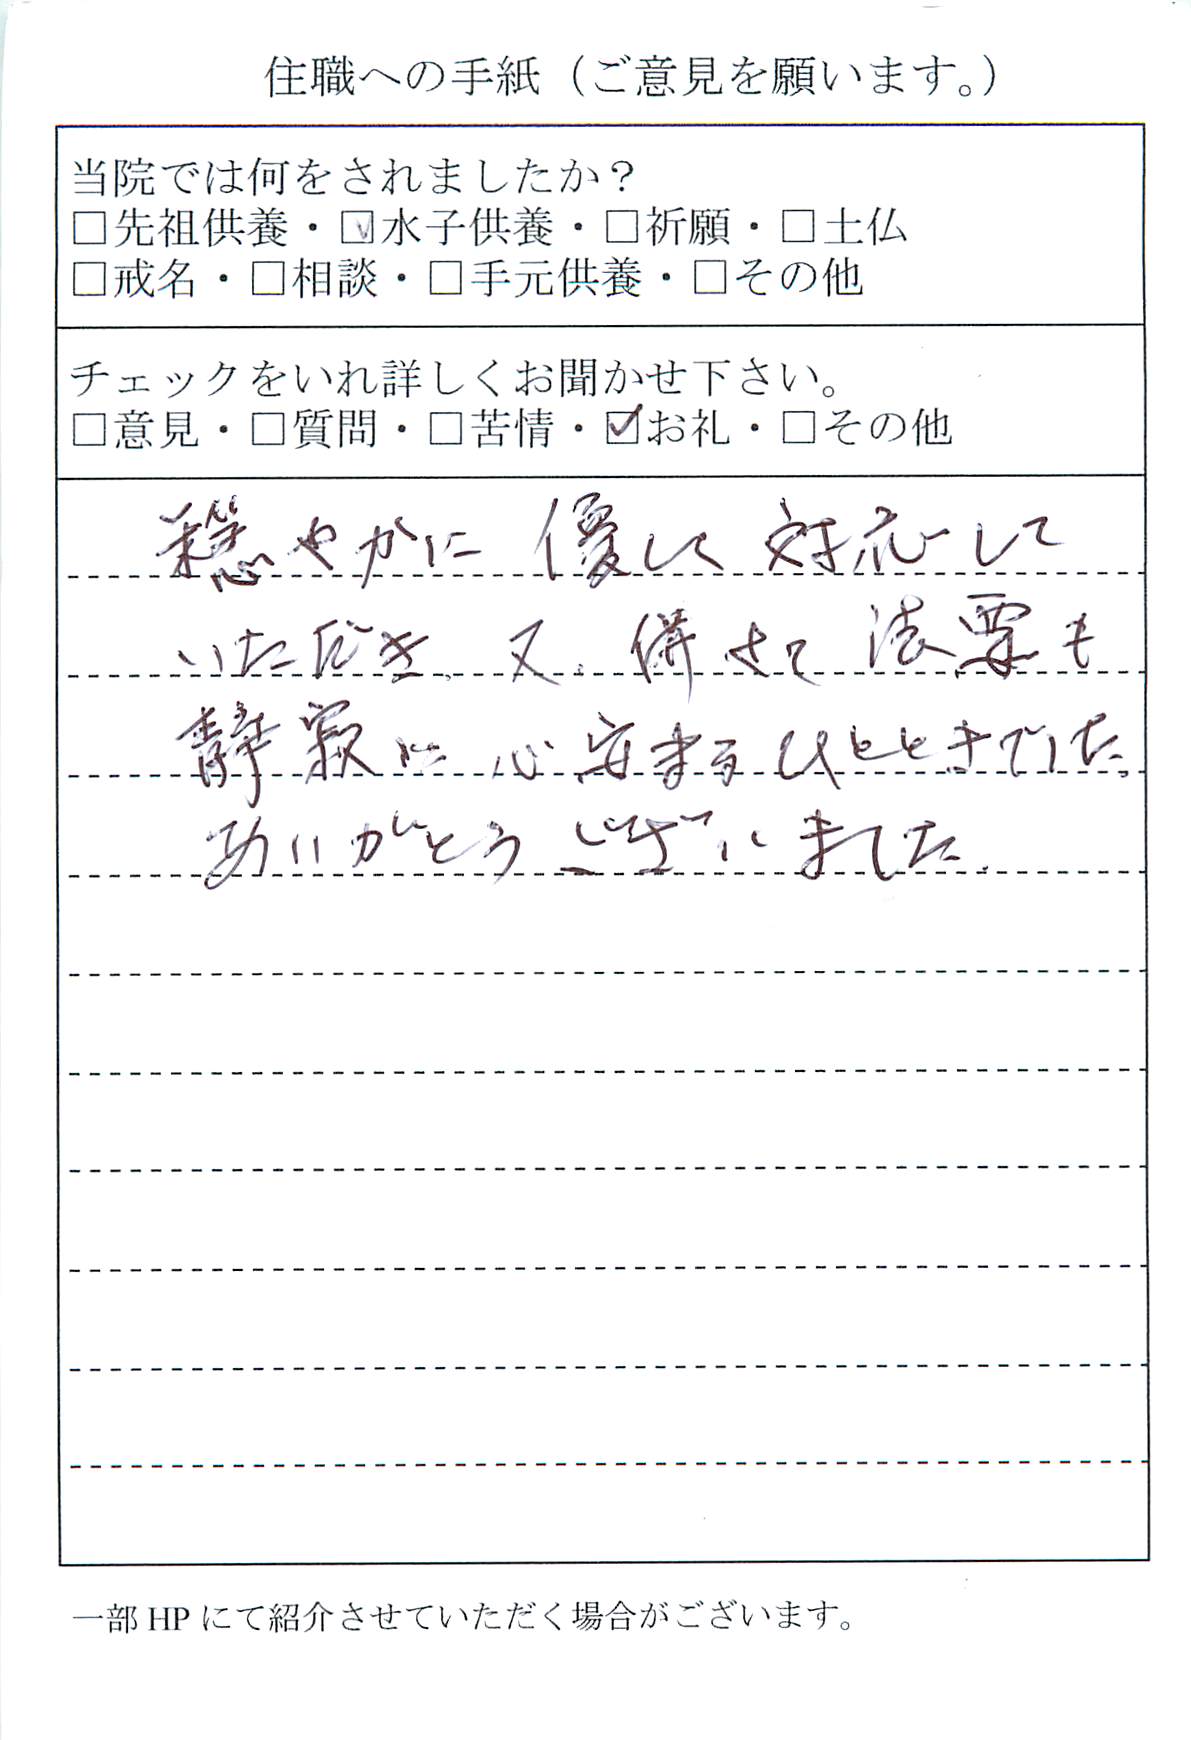 住職への手紙（ご意見を願います。）
当院では何をされましたか？
□先祖供養・☑水子供養・□祈願・□土仏
□戒名・□相談・□手元供養・□その他
チェックをいれ詳しくお聞かせ下さい。
□意見・□質問・□苦情・☑お礼・□その他
穏やかに優しく対応して
いただき、又、併せて法要も
静寂に心安まるひとときでした。
ありがとうございました。
一部 HP にて紹介させていただく場合がございます。